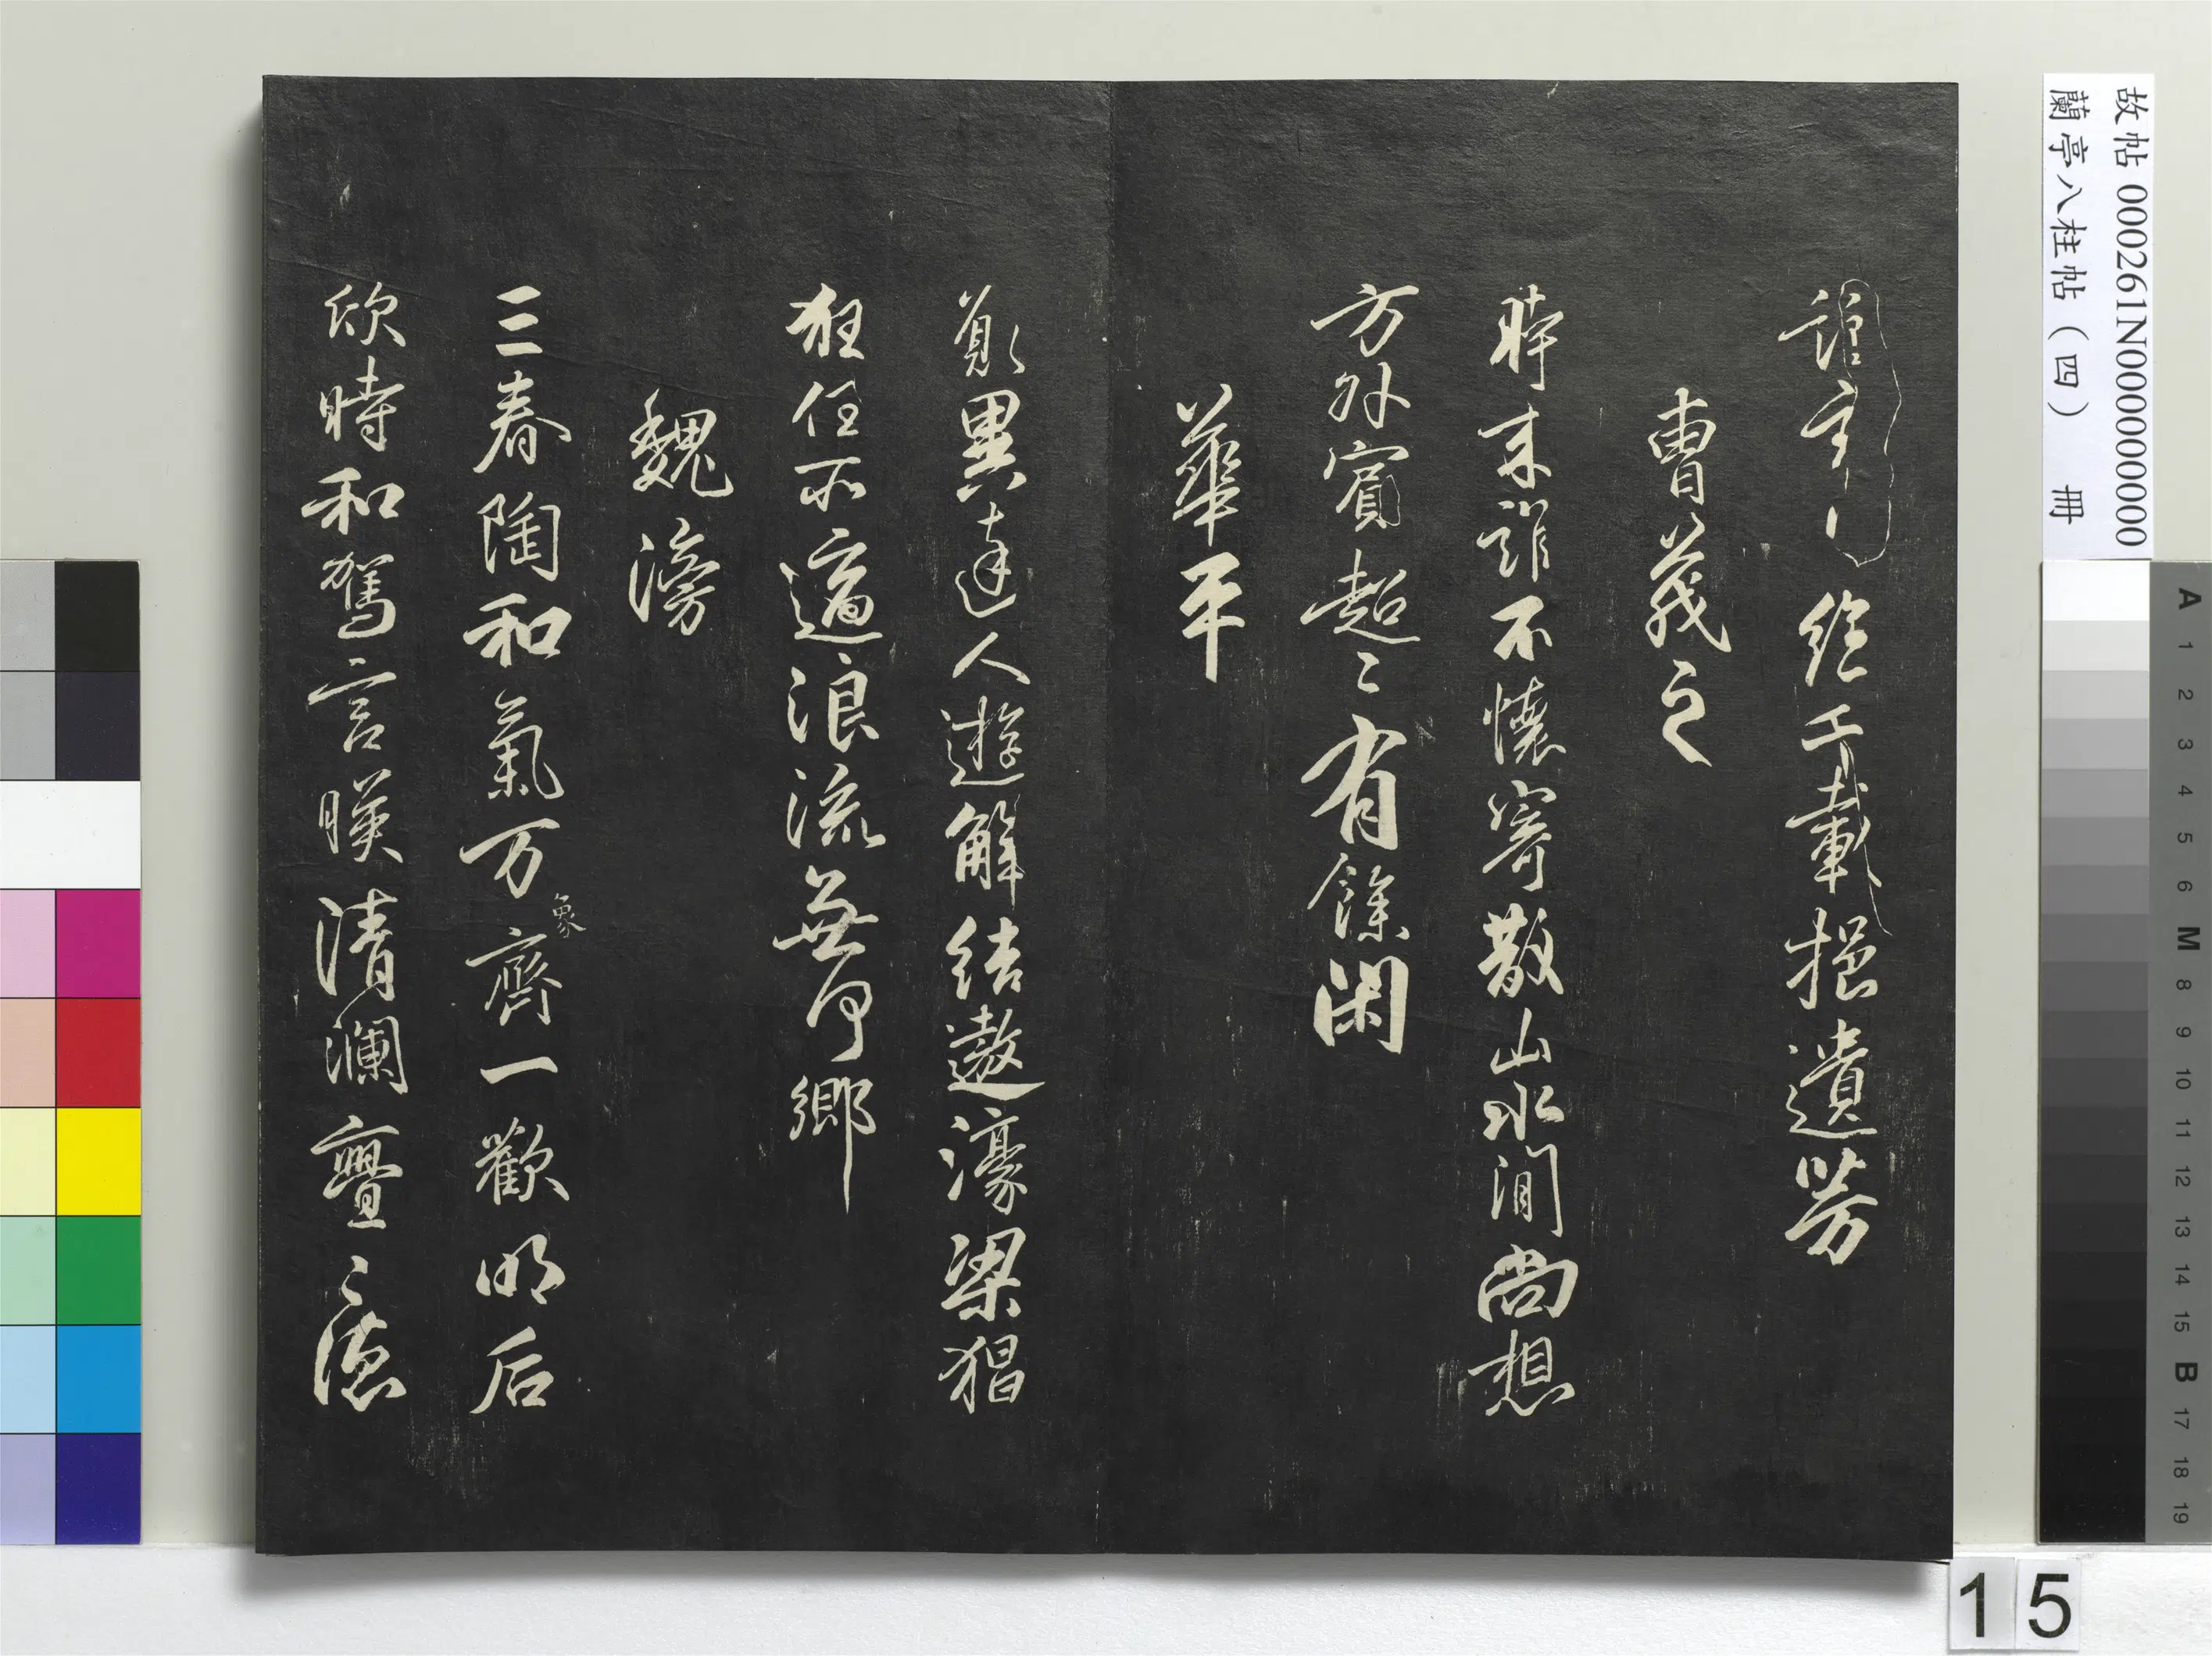 誰絕千載挹遺芳
曹茂之
時來誰不懷寄散山水間尚想
方外賓超〻有餘閑
華平
願異達人遊解結遨濠梁狂
狂任所適浪流無何鄉
魏滂
三春陶和氣万象齊一歡明后
欣時和駕言暎清瀾亹〻德
故帖 000261N000000000
蘭亭八柱帖（四） 冊
A 1 2 3 4 5 6 M 8 9 10 11 12 13 14 15 B 17 18 19
15